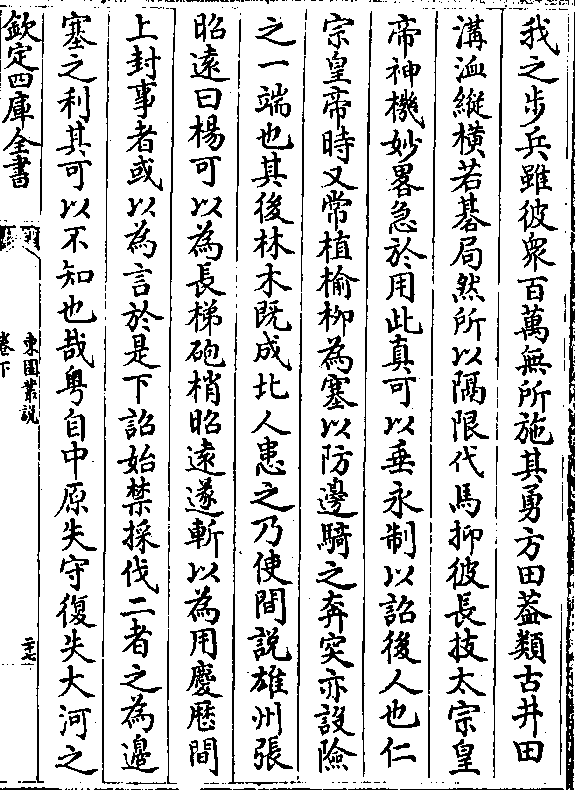 我之步兵雖彼衆百萬無所施其勇方田葢類古井田
溝洫縱横若碁局然所以隔限代馬抑彼長技太宗皇
帝神機妙畧急於用此真可以垂永制以詔後人也仁
宗皇帝時又常植榆柳為塞以防邊騎之奔突亦設險
之一端也其後林木既成北人患之乃使間説雄州張
昭遠曰楊可以為長梯砲梢昭遠遂斬以為用慶厯間
上封事者或以為言於是下詔始禁採伐二者之為邊
塞之利其可以不知也哉粤自中原失守復失大河之
欽定四庫全書
東園叢説
卷下
二十七